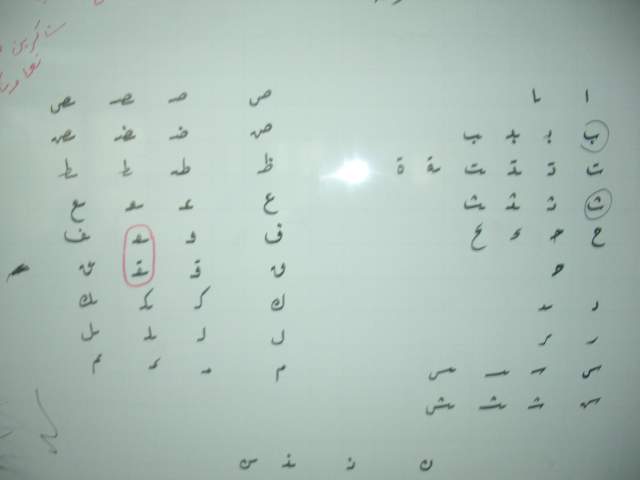 ا ـا
ب بـ ـبـ ـب
ت تـ ـتـ ـت ـة ة
ث ثـ ـثـ ـث
ح حـ ـحـ ـح
حـ
د ـد
ر ـر
س سـ ـسـ ـس
ش شـ ـشـ ـش
ص صـ ـصـ ـص
ض ضـ ـضـ ـض
ظ طـ ـطـ ـط
ع عـ ـعـ ـع
ف فـ ـفـ ـف
ق قـ ـقـ ـق
ك كـ ـكـ ـك
ل لـ ـلـ ـل
م مـ ـمـ ـم
ن نـ ـنـ ـن